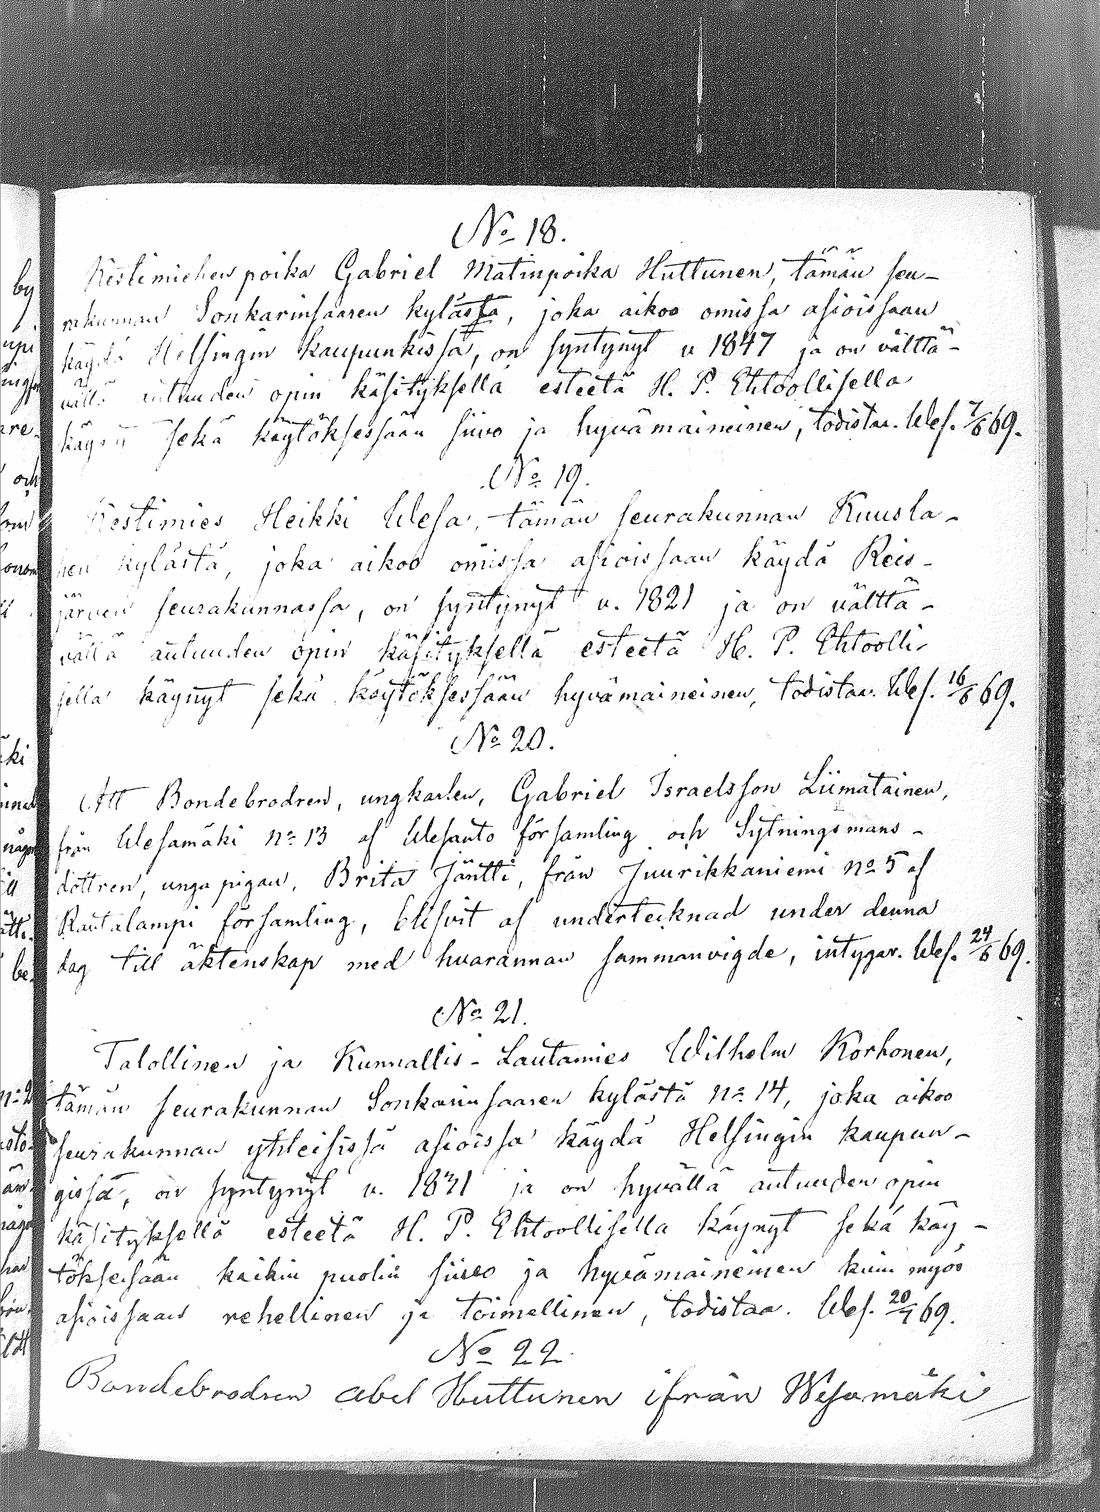 by
upi
are.
och
N:o 18.
Kestimiehen poika Gabriel Matinpoika Huttunen, tämän seu-
rakunnan Sonkarinsaaren kylästä, joka aikoo omissa asioissaan
käydä Helsingin kaupunkissa, on syntynyt v 1847 ja on välttä-
vällä autuuden opin käsityksellä esteetä H. P. Ehtoollisella
käynyt sekä käytöksessään siivo ja hyvämaineinen, todistaa. Wes. 7/6 69.
N:o 19.
Kestimies Heikki Wesa, tämän seurakunnan Kuusla-
hen kylästä, joka aikoo omissa asioissaan käydä Reis-
järven seurakunnassa, on syntynyt v. 1821 ja on välttä-
vällä autuuden opin käsityksellä esteetä H. P. Ehtoolli-
sella käynyt sekä käytöksessään hyvämaineinen, todistaa. Wes. 16/6 69.
N:o 20.
Att Bondebrodren, ungkarlen, Gabriel Israelsson Liimatainen,
från Wesamäki n:o 13 af Wesanto församling och Sytningsmans-
dottren, unga pigan, Brita Jäntti, från Juurikkaniemi n:o 5 af
Rautalampi församling, blifvit af undertecknad under denna
dag till äktenskap med hvarannan sammanvigde, intygar. Wes. 24/6 69.
N:o 21.
Talollinen ja Kunnallis-Lautamies Wilhelm Korhonen,
tämän seurakunnan Sonkarinsaaren kylästä n:o 14, joka aikoo
seurakunnan yhteisissä asioissa käydä Helsingin kaupun-
gissa, on syntynyt v. 1831 ja on hyvällä autuuden opin
käsityksellä esteetä H. P. Ehtoollisella käynyt sekä käy-
töksessään kaikin puolin siivo ja hyvämaineinen kuin myös
asioissaan rehellinen ja toimellinen, todistaa. Wes. 20/7 69.
N:o 22
Bondebrodren Abel Huttunen ifrån Wesamäki